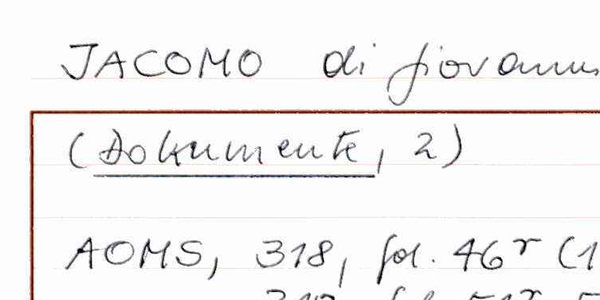 JACOMO di giovanni
(Dokumente, 2)
AOMS, 318, fol. 46r (1